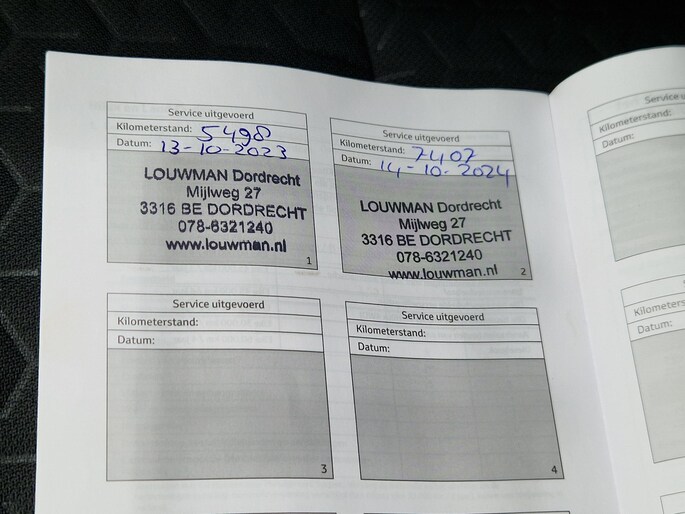 Service uitgevoerd
Kilometerstand: 5498
Datum: 13-10-2023
LOUWMAN Dordrecht
Mijlweg 27
3316 BE DORDRECHT
078-6321240
www.louwman.nl
1
Service uitgevoerd
Kilometerstand: 7407
Datum: 14-10-2024
LOUWMAN Dordrecht
Mijlweg 27
3316 BE DORDRECHT
078-6321240
www.louwman.nl
2
Service uitgevoerd
Kilometerstand:
Datum:
3
Service uitgevoerd
Kilometerstand:
Datum:
4
Service
Kilometerstand:
Datum:
Service
Datum: